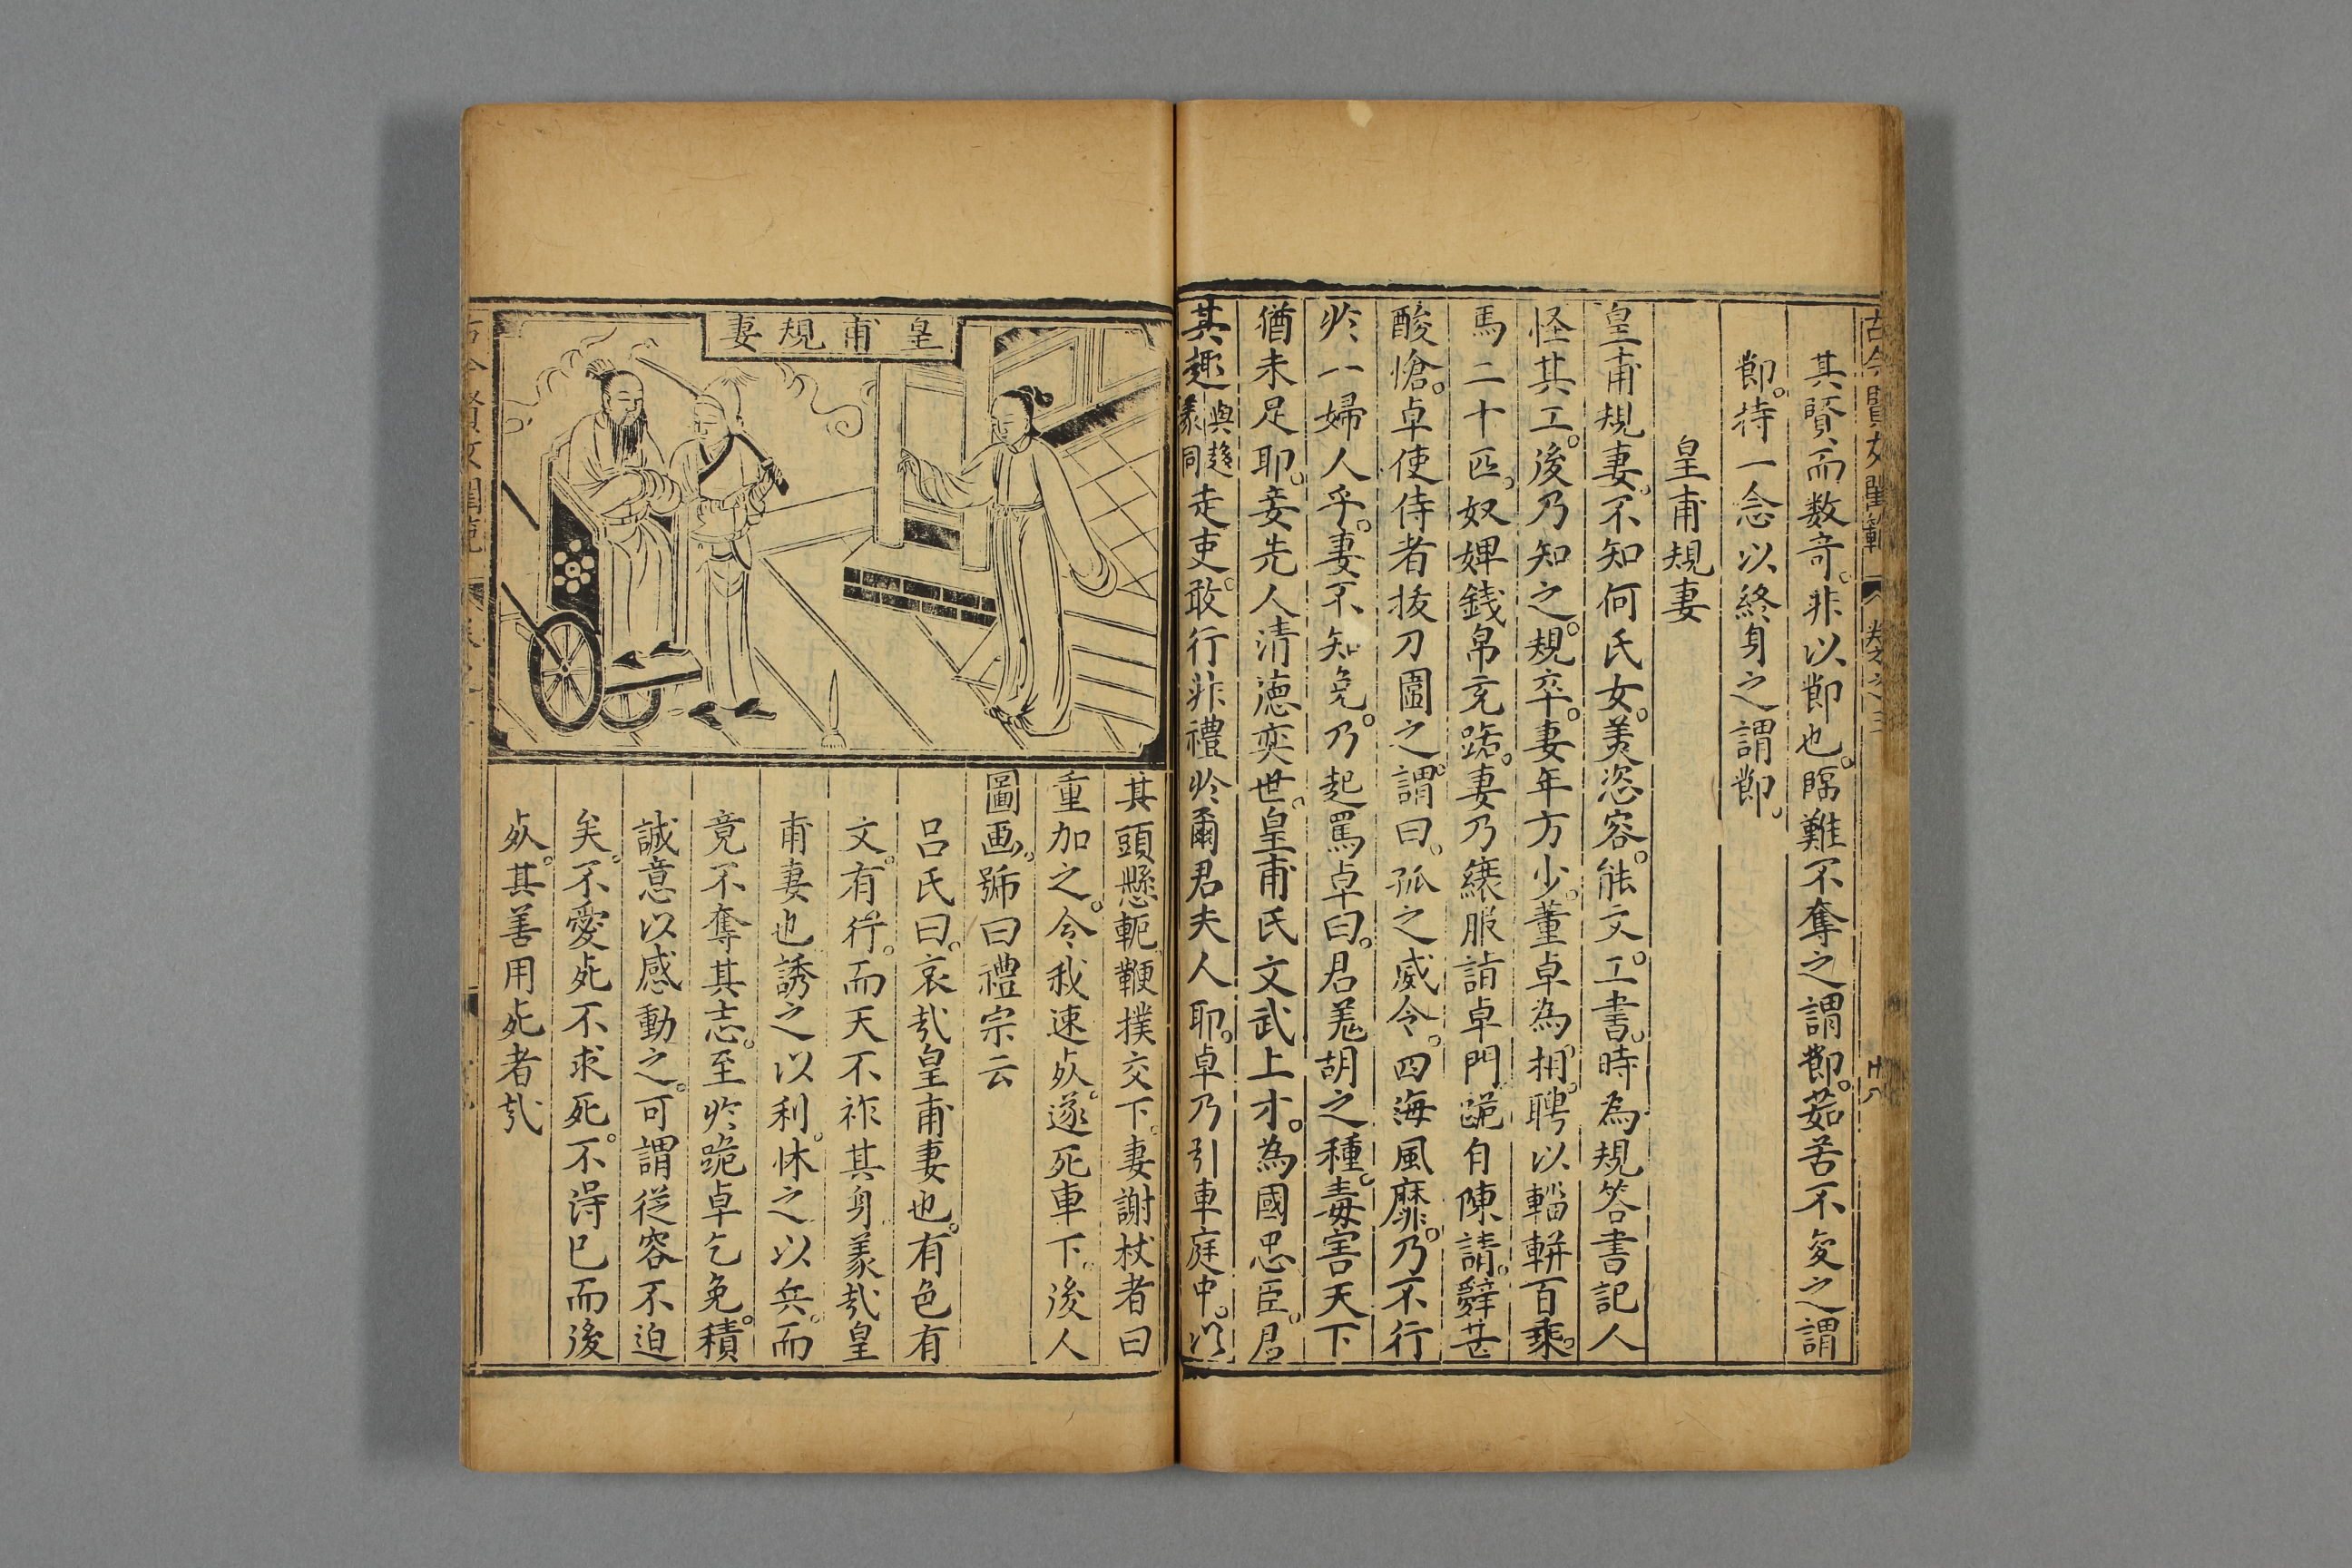 古今賢女閨範 卷之三 廿八
其賢而数竒非以莭也臨難不奪之謂莭茹苦不变之謂
莭持一念以終身之謂莭
皇甫規妻
皇甫規妻不知何氏女美恣容能文工書時為規答書記人
怪其工後乃知之規卒妻年方少董卓為相聘以輜軿百乘
馬二十匹奴婢錢帛充路妻乃縗服詣卓門跪自陳請辤甚
酸愴卓使侍者拔刀圍之謂曰孤之威令四海風靡乃不行
扵一婦人乎妻不知免乃起罵卓曰君羗胡之種毒害天下
猶未足耶妾先人清德奕世皇甫氏文武上才為國忠臣君
其趣與趨義同走吏敢行非禮扵爾君夫人耶卓乃引車庭中以
皇甫規妻
其頭懸軛鞭撲交下妻謝杖者曰
重加之令我速㱔遂死車下後人
圖画號曰禮宗云
呂氏曰哀㢤皇甫妻也有色有
文有行而天不祚其身義㢤皇
甫妻也誘之以利怵之以兵而
竟不奪其志至扵跪卓乞免積
誠意以感動之可謂從容不迫
矣不愛死不求死不得已而後
死其善用死者㢤
古今賢女閨範